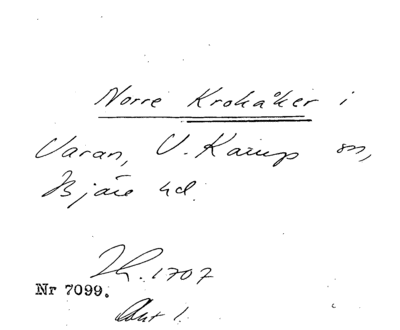 Norre Krokåker i
Varan, V. Karup sn,
Bjäre hd.
Lh. 1707
Nr 7099.
Akt 1.